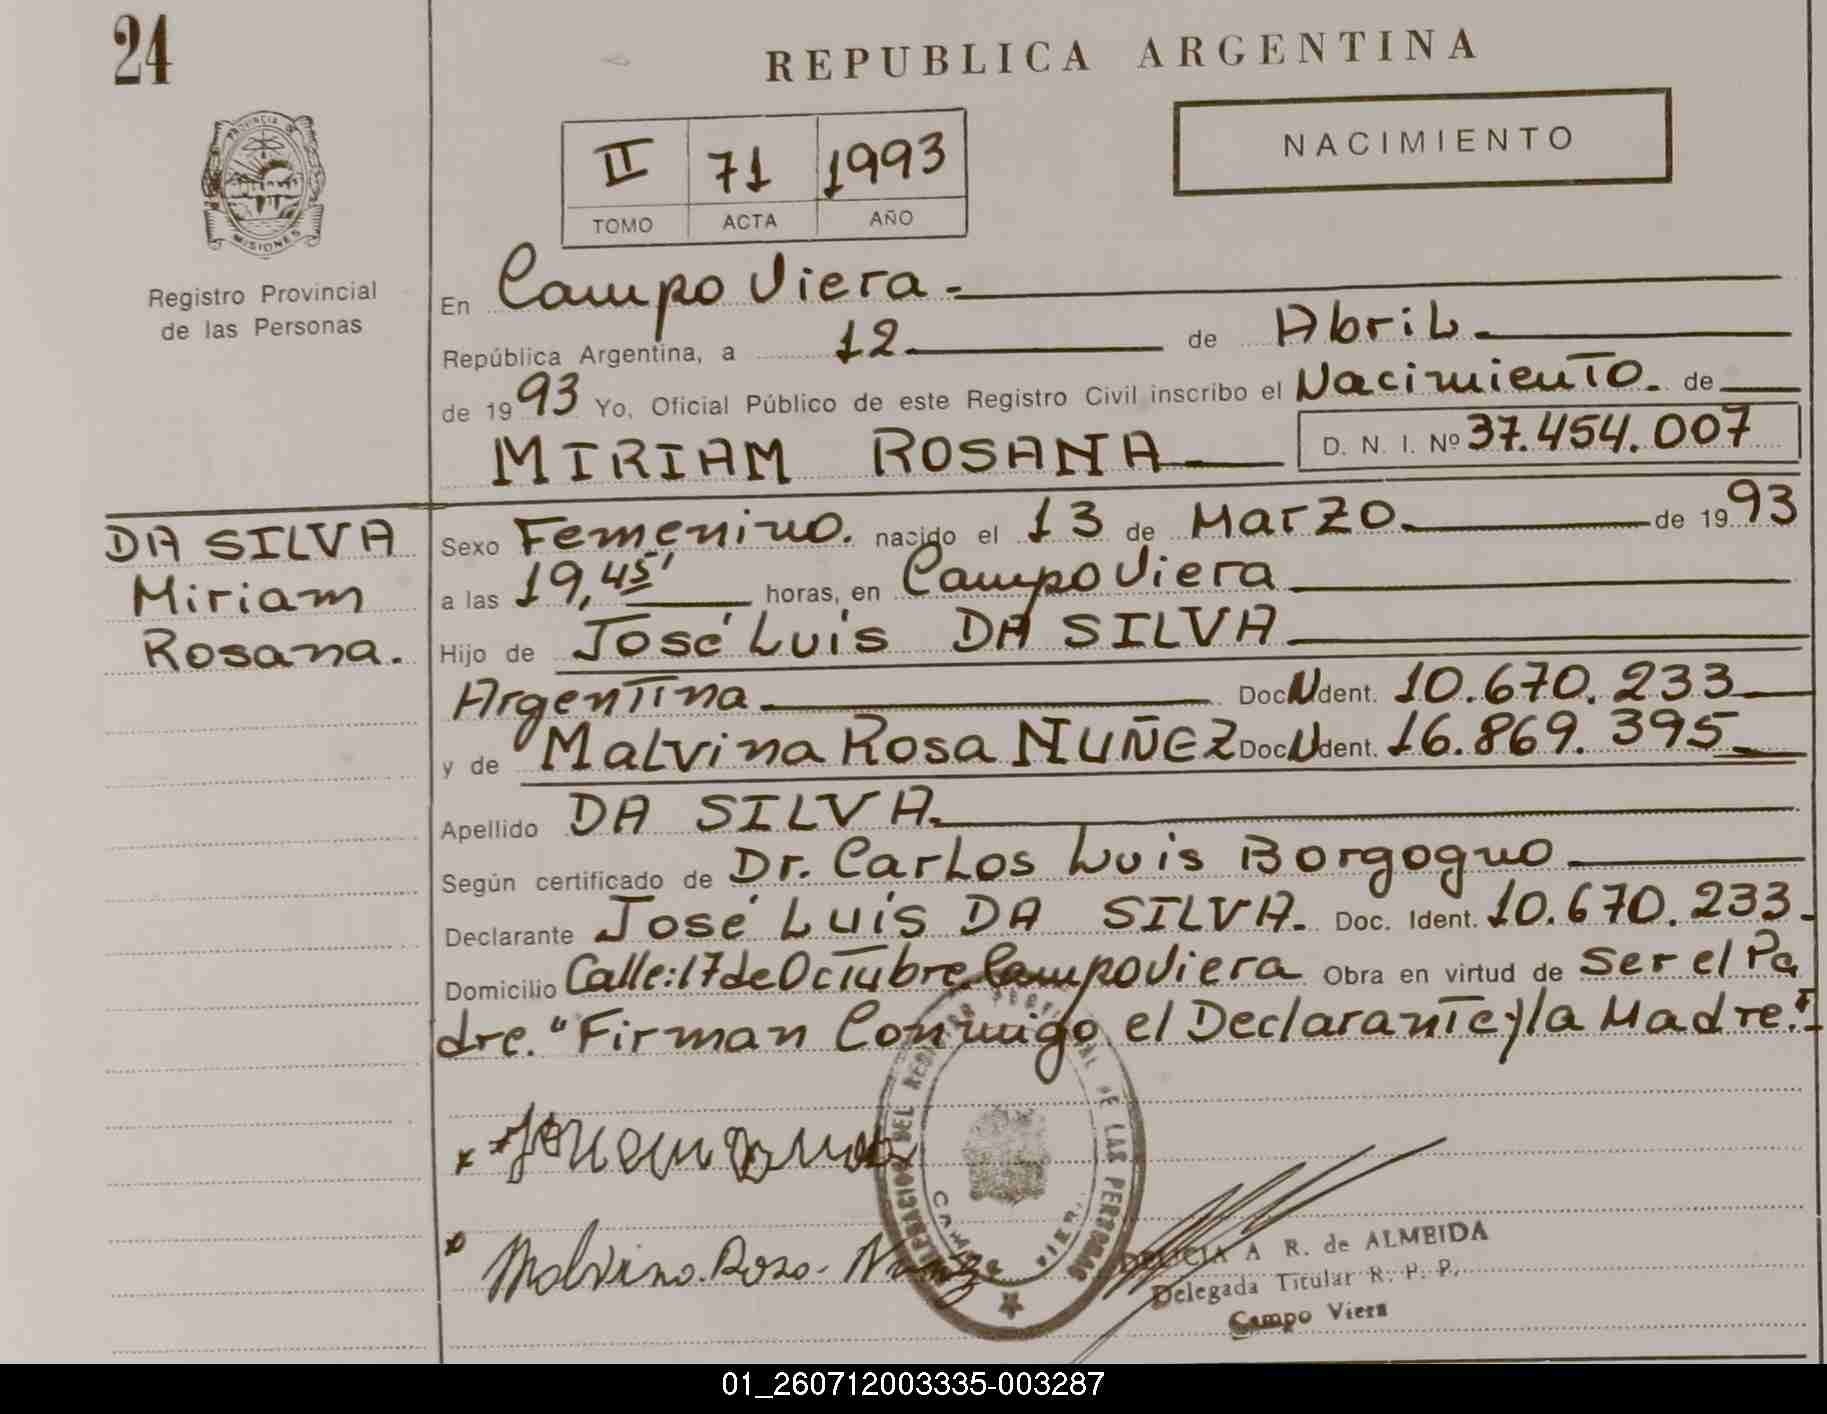 24
REPUBLICA ARGENTINA
PROVINCIA DE
MISIONES
Registro Provincial
de las Personas
II 71 1993
TOMO ACTA AÑO
NACIMIENTO
En Campo Viera.
República Argentina, a 12 de Abril.
de 1993 Yo, Oficial Público de este Registro Civil inscribo el Nacimiento. de
MIRIAM ROSANA D. N. I. Nº 37.454.007
DA SILVA
Miriam
Rosana.
Sexo Femenino. nacido el 13 de Marzo. de 1993
a las 19,45' horas, en Campo Viera
Hijo de José Luis DA SILVA
Argentina Doc N Ident. 10.670.233
y de Malvina Rosa NUÑEZ Doc N Ident. 16.869.395
Apellido DA SILVA.
Según certificado de Dr. Carlos Luis Borgogno
Declarante José Luis DA SILVA. Doc. Ident. 10.670.233.
Domicilio Calle:17 de Octubre Campo Viera Obra en virtud de Ser el Pa
dre. "Firman Conmigo el Declarante y la Madre."
DEL REGISTRO PROVINCIAL DE LAS PERSONAS
CAMPO VIERA
Malvina Rosa Nuñez
DELICIA A R. de ALMEIDA
Delegada Titular R. P. P.
Campo Viera
01_260712003335-003287